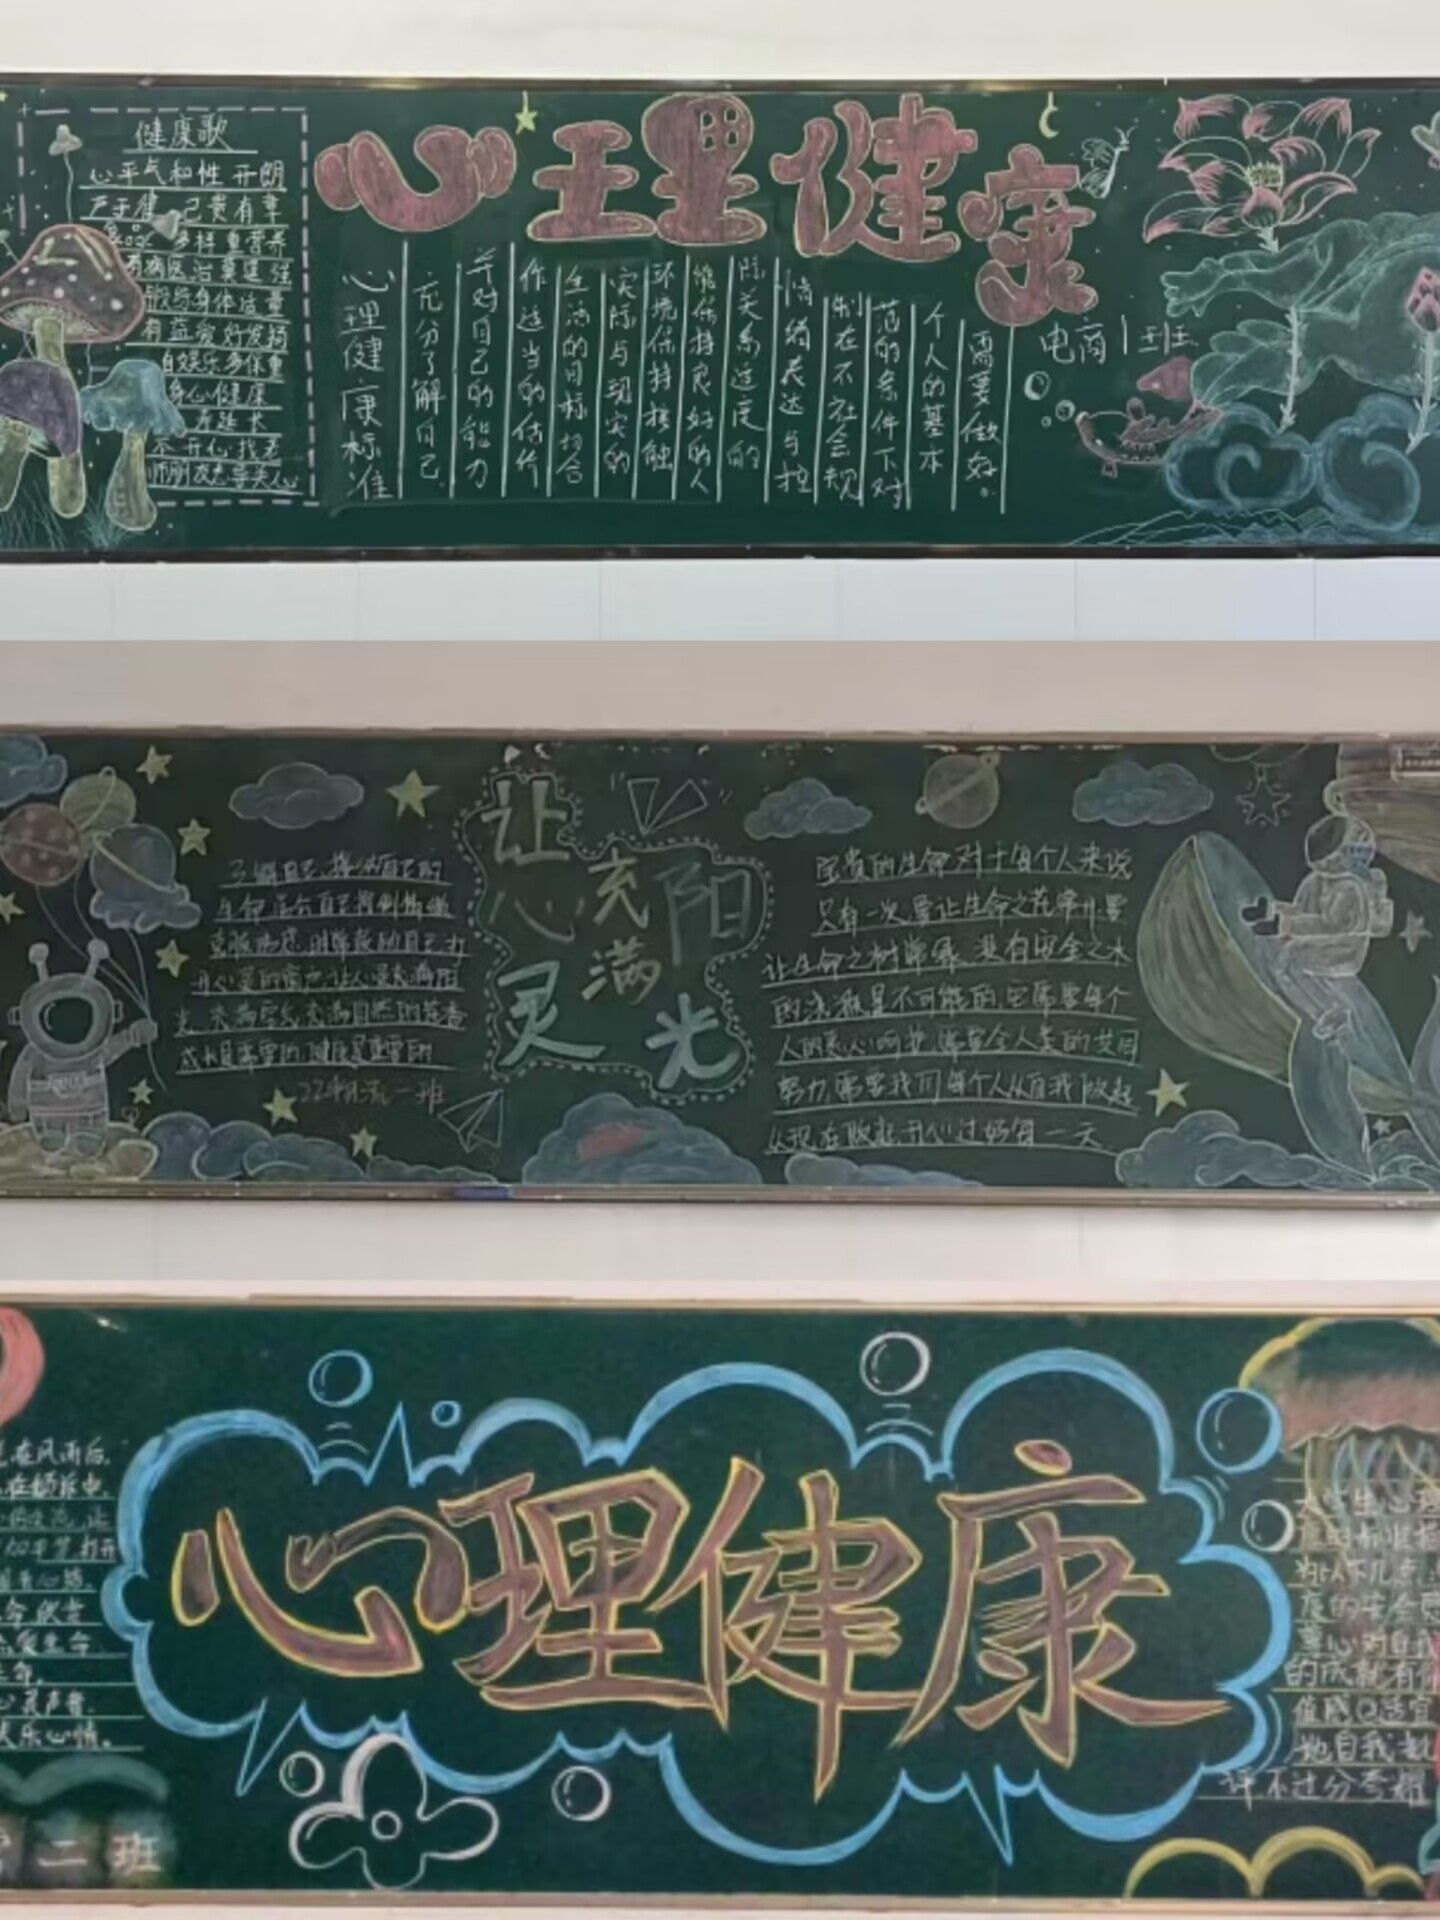 心理健康
健康歌
心平气和性开朗
严于律己贵有章
食品多样重营养
有病医治莫逞强
锻炼身体适量
有益爱好发扬
自娱乐多保重
身心健康
寿延长
不开心找老
师朋友态导关心
心理健康标准
充分了解自己
并对自己的能力
作适当的估价
生活的目标切合
实际与现实的
环境保持接触
能保持良好的人
际关系适度的
情绪表达与控
制在不社会规
范的条件下对
个人的基本
需要做好。
电商1班
让心灵充满阳光
了解自己,接纳自己的
光,充满空气,充满自然的花香
成长是需要的,健康是重要的
22年 一班
宝贵的生命对于每个人来说
只有一次,要让生命之花常开,要
让生命之树常绿,没有安全之水
的浇灌是不可能的,它需要每个
人的关心呵护,需要全人类的共同
努力,需要我们每个人从自我做起
从现在做起,开心过好每一天
心理健康
在风雨后,
热爱生命
生命,
心灵声音,
快乐心情。
二班
大学生心
康的标准
为以下几点
度的安全
尊心对自
的成就有
值感②适宜
地自我批
评不过分夸耀